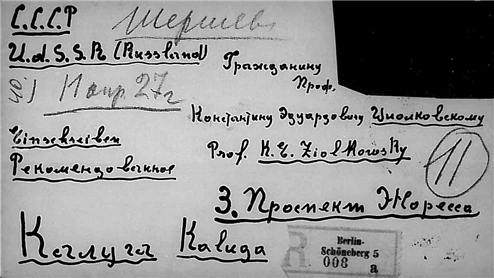 С.С.С.Р
U.d.S.S.R (Russland)
Шершев
Гражданину
Проф.
11 апр. 27г
Константину Эдуардовичу Циолковскому
Einschreiben
Рекомендованное
Prof. K. E. Ziolkowsky
11
3. Проспект Жореса
Калуга Kaluga
R
Berlin-
Schöneberg 5
008 a